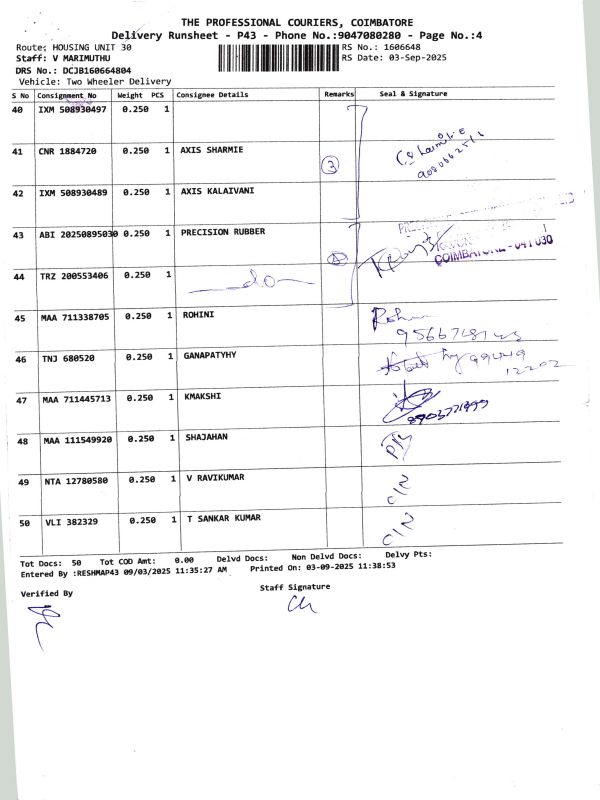 THE PROFESSIONAL COURIERS, COIMBATORE
Delivery Runsheet - P43 - Phone No.:9047080280 - Page No.:4
Route: HOUSING UNIT 30 RS No.: 1606648
Staff: V MARIMUTHU RS Date: 03-Sep-2025
DRS No.: DCJB160664804
Vehicle: Two Wheeler Delivery
S No Consignment No Weight PCS Consignee Details Remarks Seal & Signature
40 IXM 508930497 0.250 1
41 CNR 1884720 0.250 1 AXIS SHARMIE 3
42 IXM 508930489 0.250 1 AXIS KALAIVANI
43 ABI 20250895030 0.250 1 PRECISION RUBBER
COIMBATORE - 641 030
44 TRZ 200553406 0.250 1 do
45 MAA 711338705 0.250 1 ROHINI
46 TNJ 680520 0.250 1 GANAPATYHY
47 MAA 711445713 0.250 1 KMAKSHI
48 MAA 111549920 0.250 1 SHAJAHAN
49 NTA 12780580 0.250 1 V RAVIKUMAR
50 VLI 382329 0.250 1 T SANKAR KUMAR
Tot Docs: 50 Tot COD Amt: 0.00 Delvd Docs: Non Delvd Docs: Delvy Pts:
Entered By :RESHMAP43 09/03/2025 11:35:27 AM Printed On: 03-09-2025 11:38:53
Verified By Staff Signature